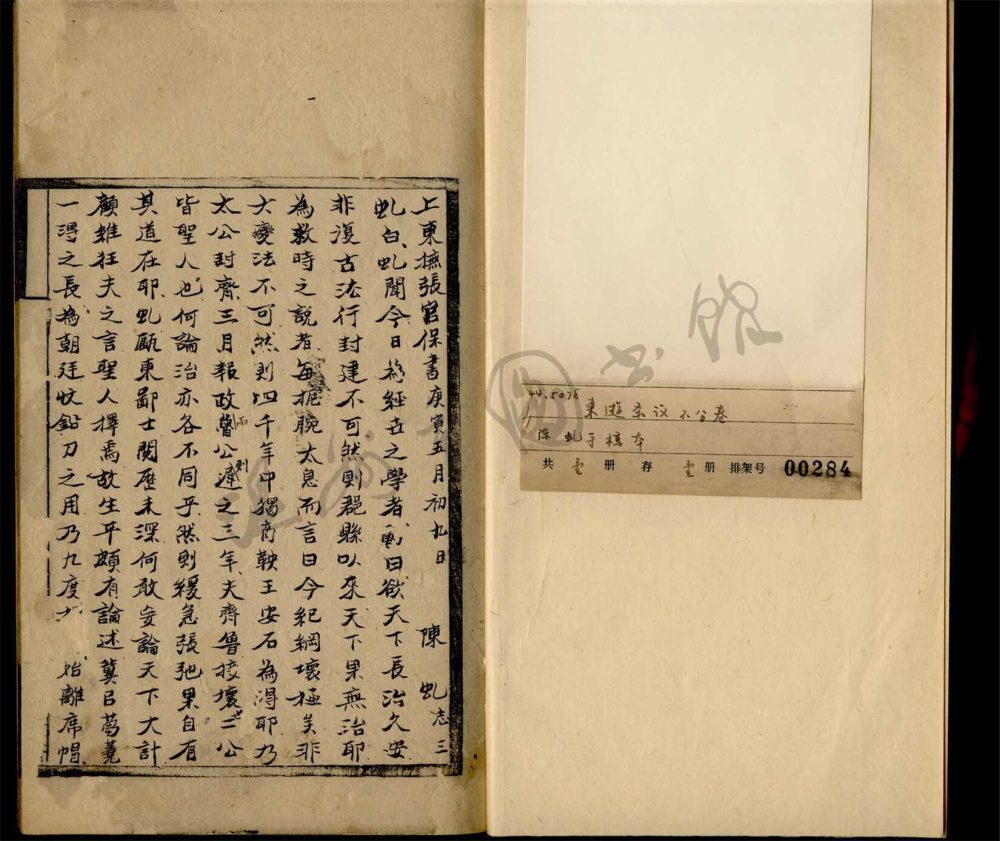 上東撫張宮保書庚寅五月初九日 陳虬志三
虬白虬聞今日為經世之學者動曰欲天下長治久安
非復古法行封建不可然則郡縣以來天下果無治耶
為救時之說者每扼腕太息而言曰今紀綱壞極矣非
大變法不可然則四千年中獨商鞅王安石為得耶乃
太公封齊三月報政而魯公遲之三年夫齊魯接壤二公
皆聖人也何論治亦各不同乎然則緩急張弛果自有
其道在耶虬甌東鄙士閱歷未深何敢妄論天下大計
顧雖狂夫之言聖人擇焉故生平頗有論述冀以芻蕘
一得之長為朝廷收鉛刀之用乃九度 始離席帽
44.5078
東遊条议不分卷
陈虬手稿本
共 壹 册 存 壹 册 排架号 00284
图书馆